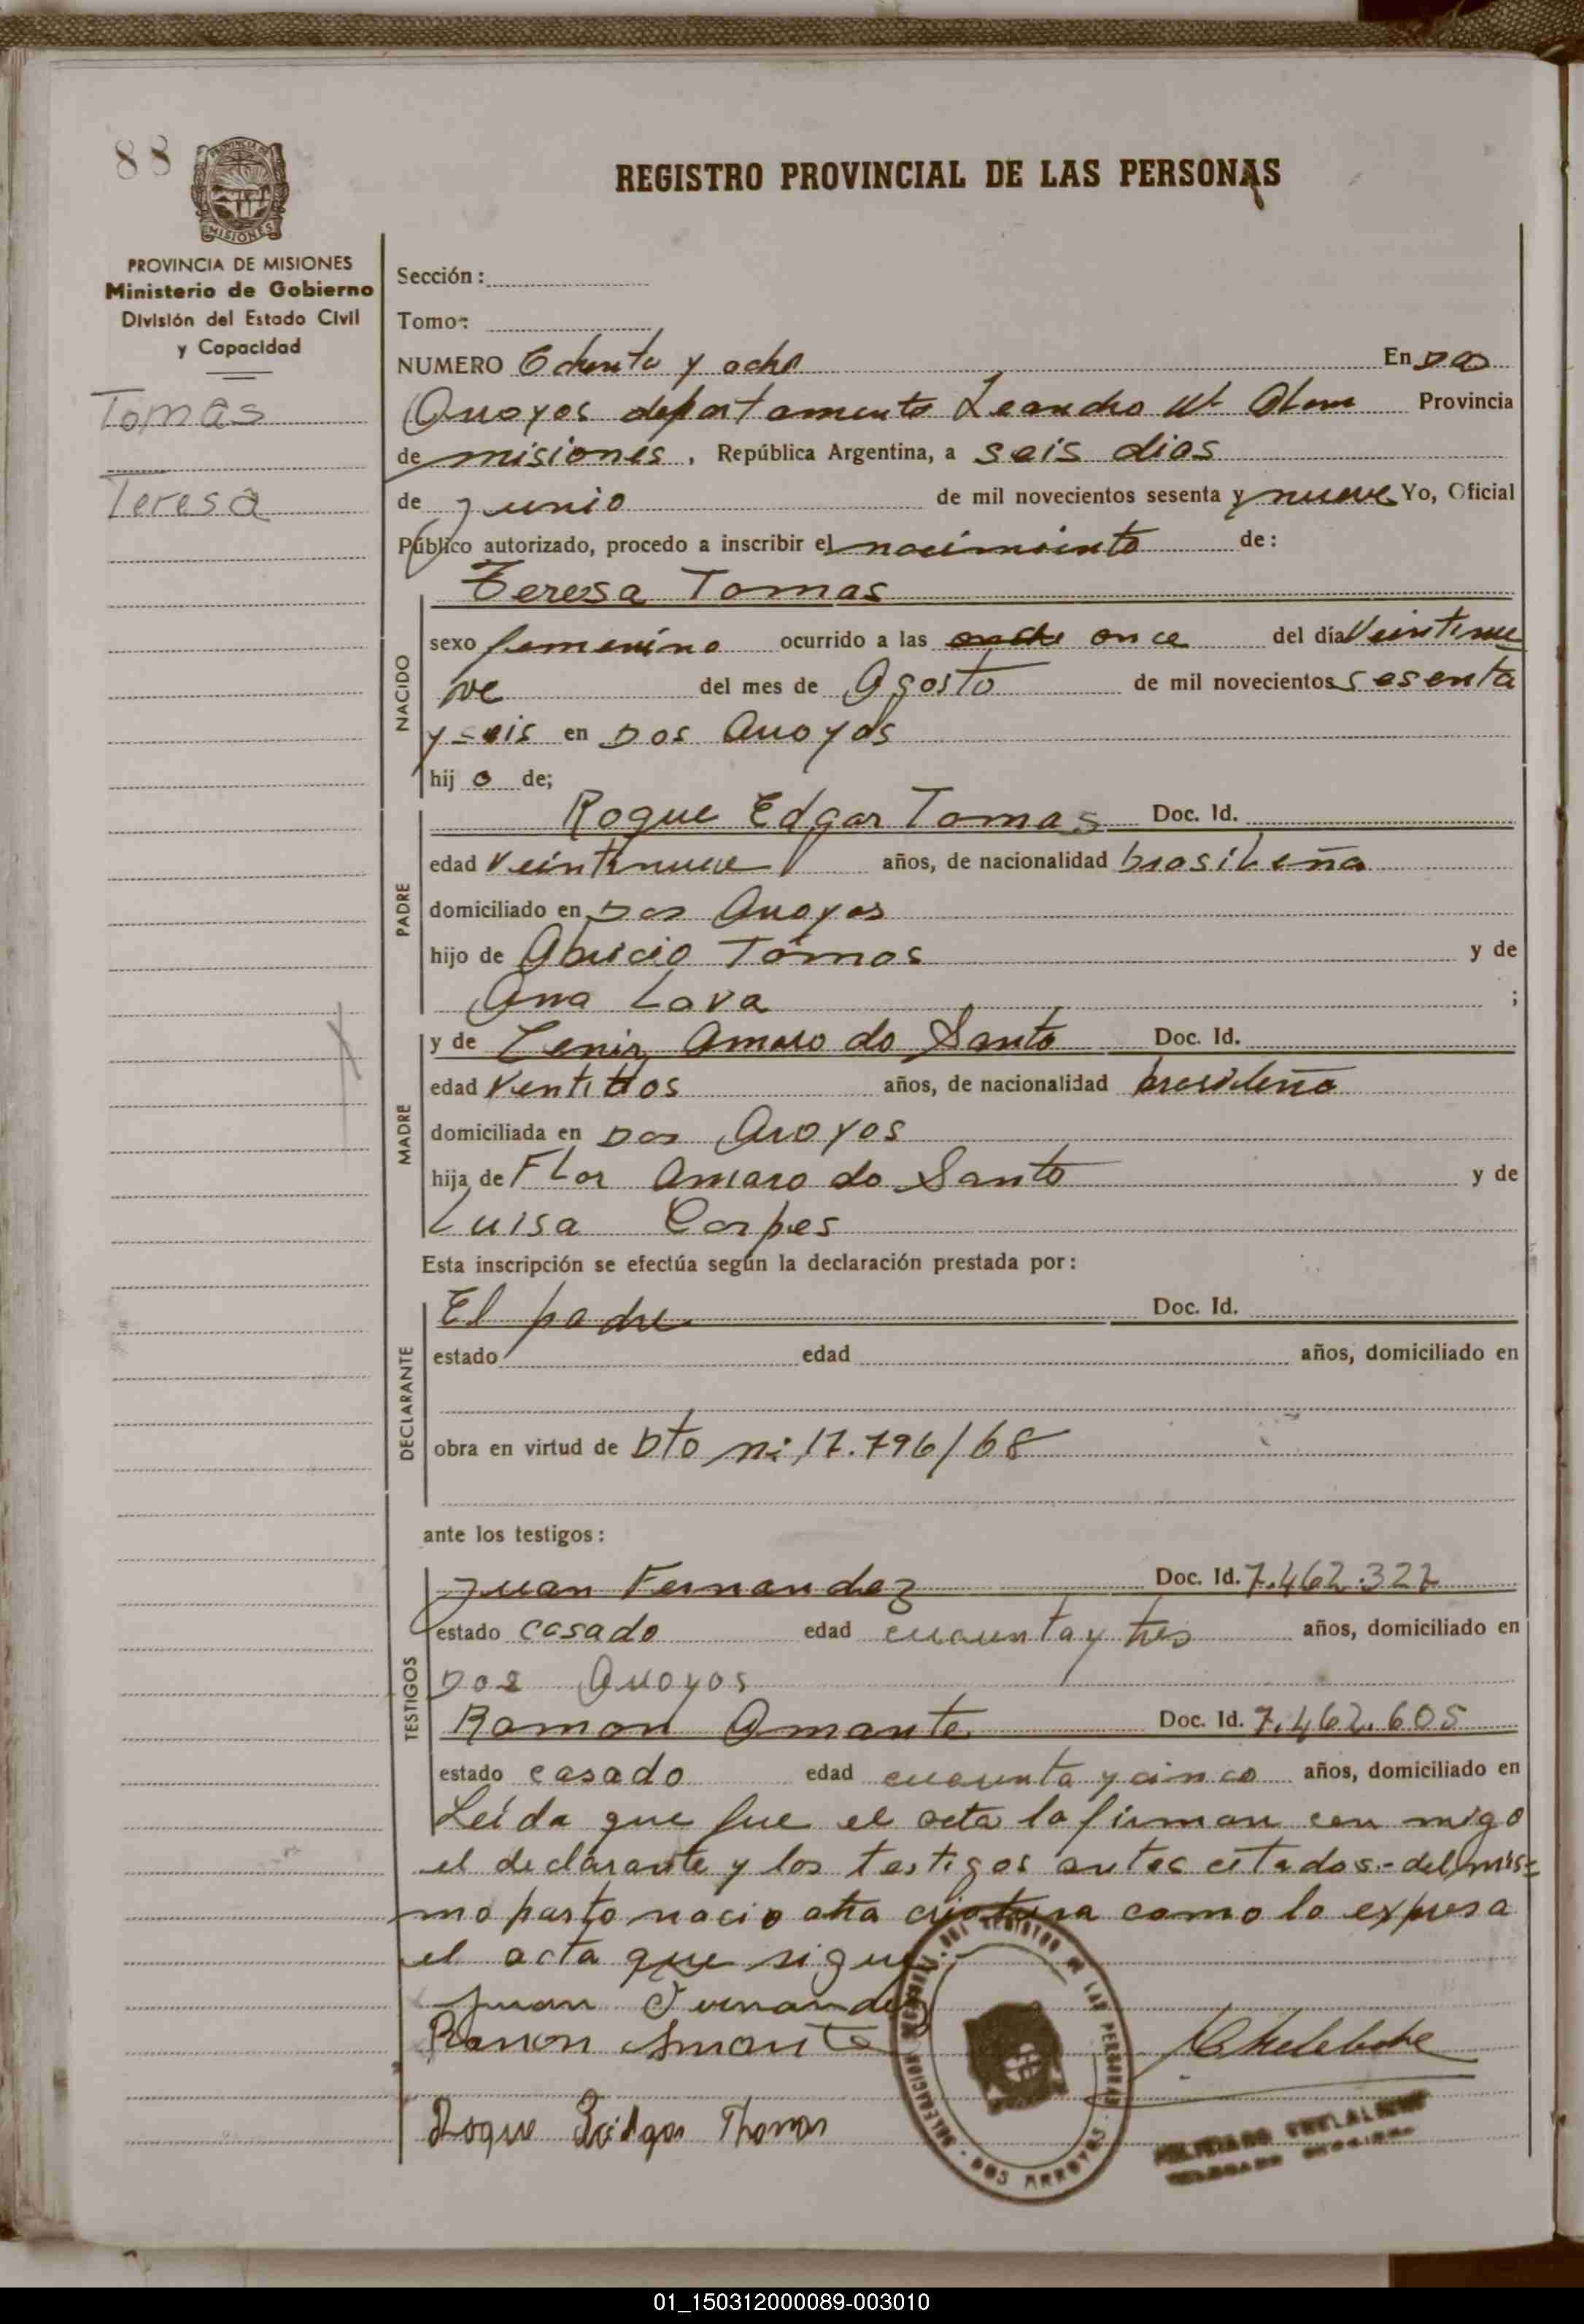 88
PROVINCIA DE
MISIONES
REGISTRO PROVINCIAL DE LAS PERSONAS
PROVINCIA DE MISIONES
Ministerio de Gobierno
División del Estado Civil
y Capacidad
Tomas
Teresa
Sección:
Tomo:
NUMERO Ochenta y ocho En Dos
Arroyos departamento Leandro N. Alem Provincia
de misiones, República Argentina, a seis dias
de Junio de mil novecientos sesenta y nueve Yo, Oficial
Público autorizado, procedo a inscribir el nacimiento de:
Teresa Tomas
NACIDO
sexo femenino ocurrido a las once del día Veintinue
ve del mes de Agosto de mil novecientos sesenta
y seis en Dos Arroyos
hij o de;
PADRE
Roque Edgar Tomas Doc. Id.
edad Veintinueve años, de nacionalidad brasileña
domiciliado en Dos Arroyos
hijo de Tomas y de
Ana Lava ;
MADRE
y de Zeniz Amaro do Santo Doc. Id.
edad Ventidos años, de nacionalidad brasileña
domiciliada en Dos Arroyos
hija de Flor Amaro do Santo y de
Luisa Corpes
Esta inscripción se efectúa según la declaración prestada por:
DECLARANTE
El padre Doc. Id.
estado edad años, domiciliado en
obra en virtud de Dto n: 17.796/68
ante los testigos:
TESTIGOS
Juan Fernandez Doc. Id. 7.462.327
estado casado edad cuarenta y tres años, domiciliado en
Dos Arroyos
Ramon Amante Doc. Id. 7.462.605
estado casado edad cuarenta y cinco años, domiciliado en
Leida que fue el acta la firman con migo
el declarante y los testigos antes citados.- del mis=
mo parto nacio otra criatura como lo expresa
el acta que sigue.-
Juan Fernandez
Ramon Amante
Roque Edgar Thomas
DELEGACION DEL REGISTRO DE LAS PERSONAS - DOS ARROYOS -
01_150312000089-003010